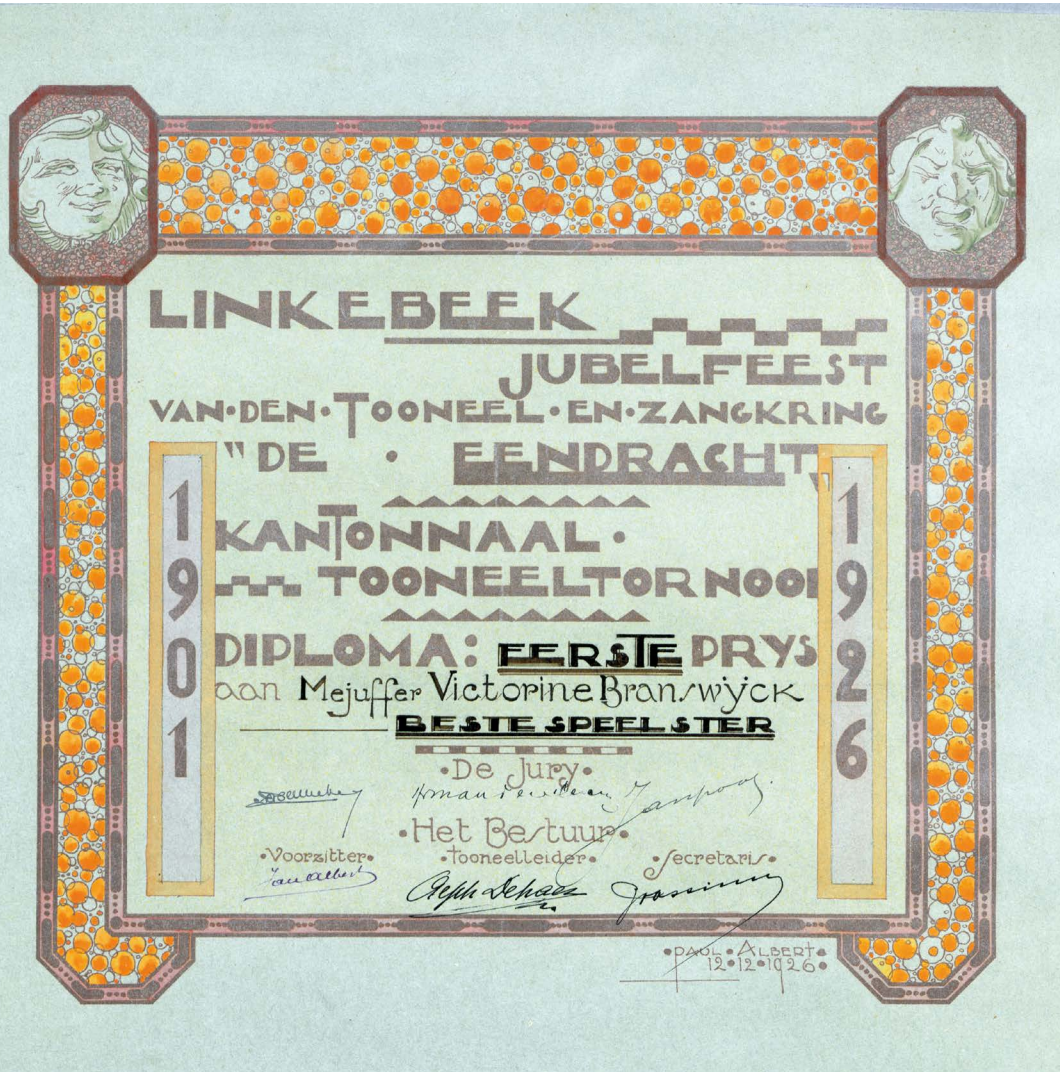 LINKEBEEK
JUBELFEEST
VAN·DEN·TOONEEL·EN·ZANGKRING
"DE · EENDRACHT"
1901
1926
KANTONNAAL·
TOONEELTORNOOI
DIPLOMA: EERSTE PRYS
aan Mejuffer Victorine Branswÿck
BESTE SPEELSTER
·De Jury·
·Het Bestuur·
·Voorzitter· ·Tooneelleider· ·Secretaris·
Jan Albert
·PAUL·ALBERT·
12·12·1926·